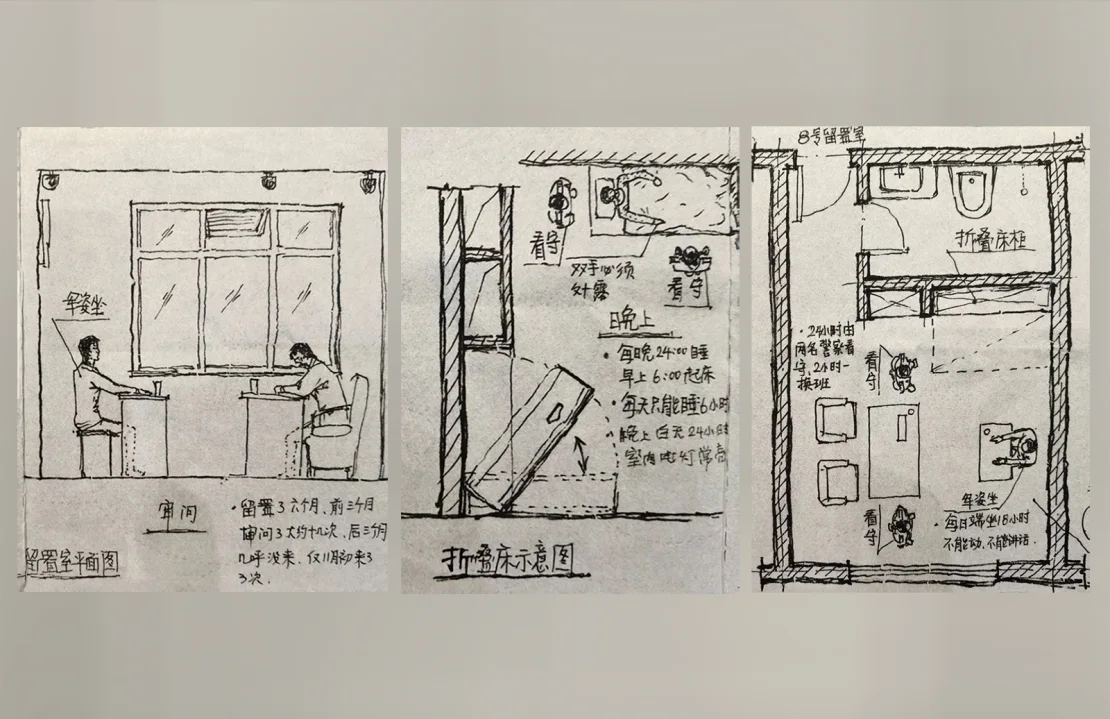 军姿坐
审问
·留置3六个月、前三个月
审问3大约十几次,后三个月
几乎没来、仅
3次.
留置室平面图
看守
双手必须
外露
看守
晚上
·每晚24:00睡
早上6:00起床
·每天只能睡6小时
·晚上白天24小时
室内电灯常亮
折叠床示意图
8号留置室
折叠床柜
·24小时由
两名警察看
守,2小时一
换班
看守
军姿坐
·每日端坐18小时
不能动.不能讲话.
看守